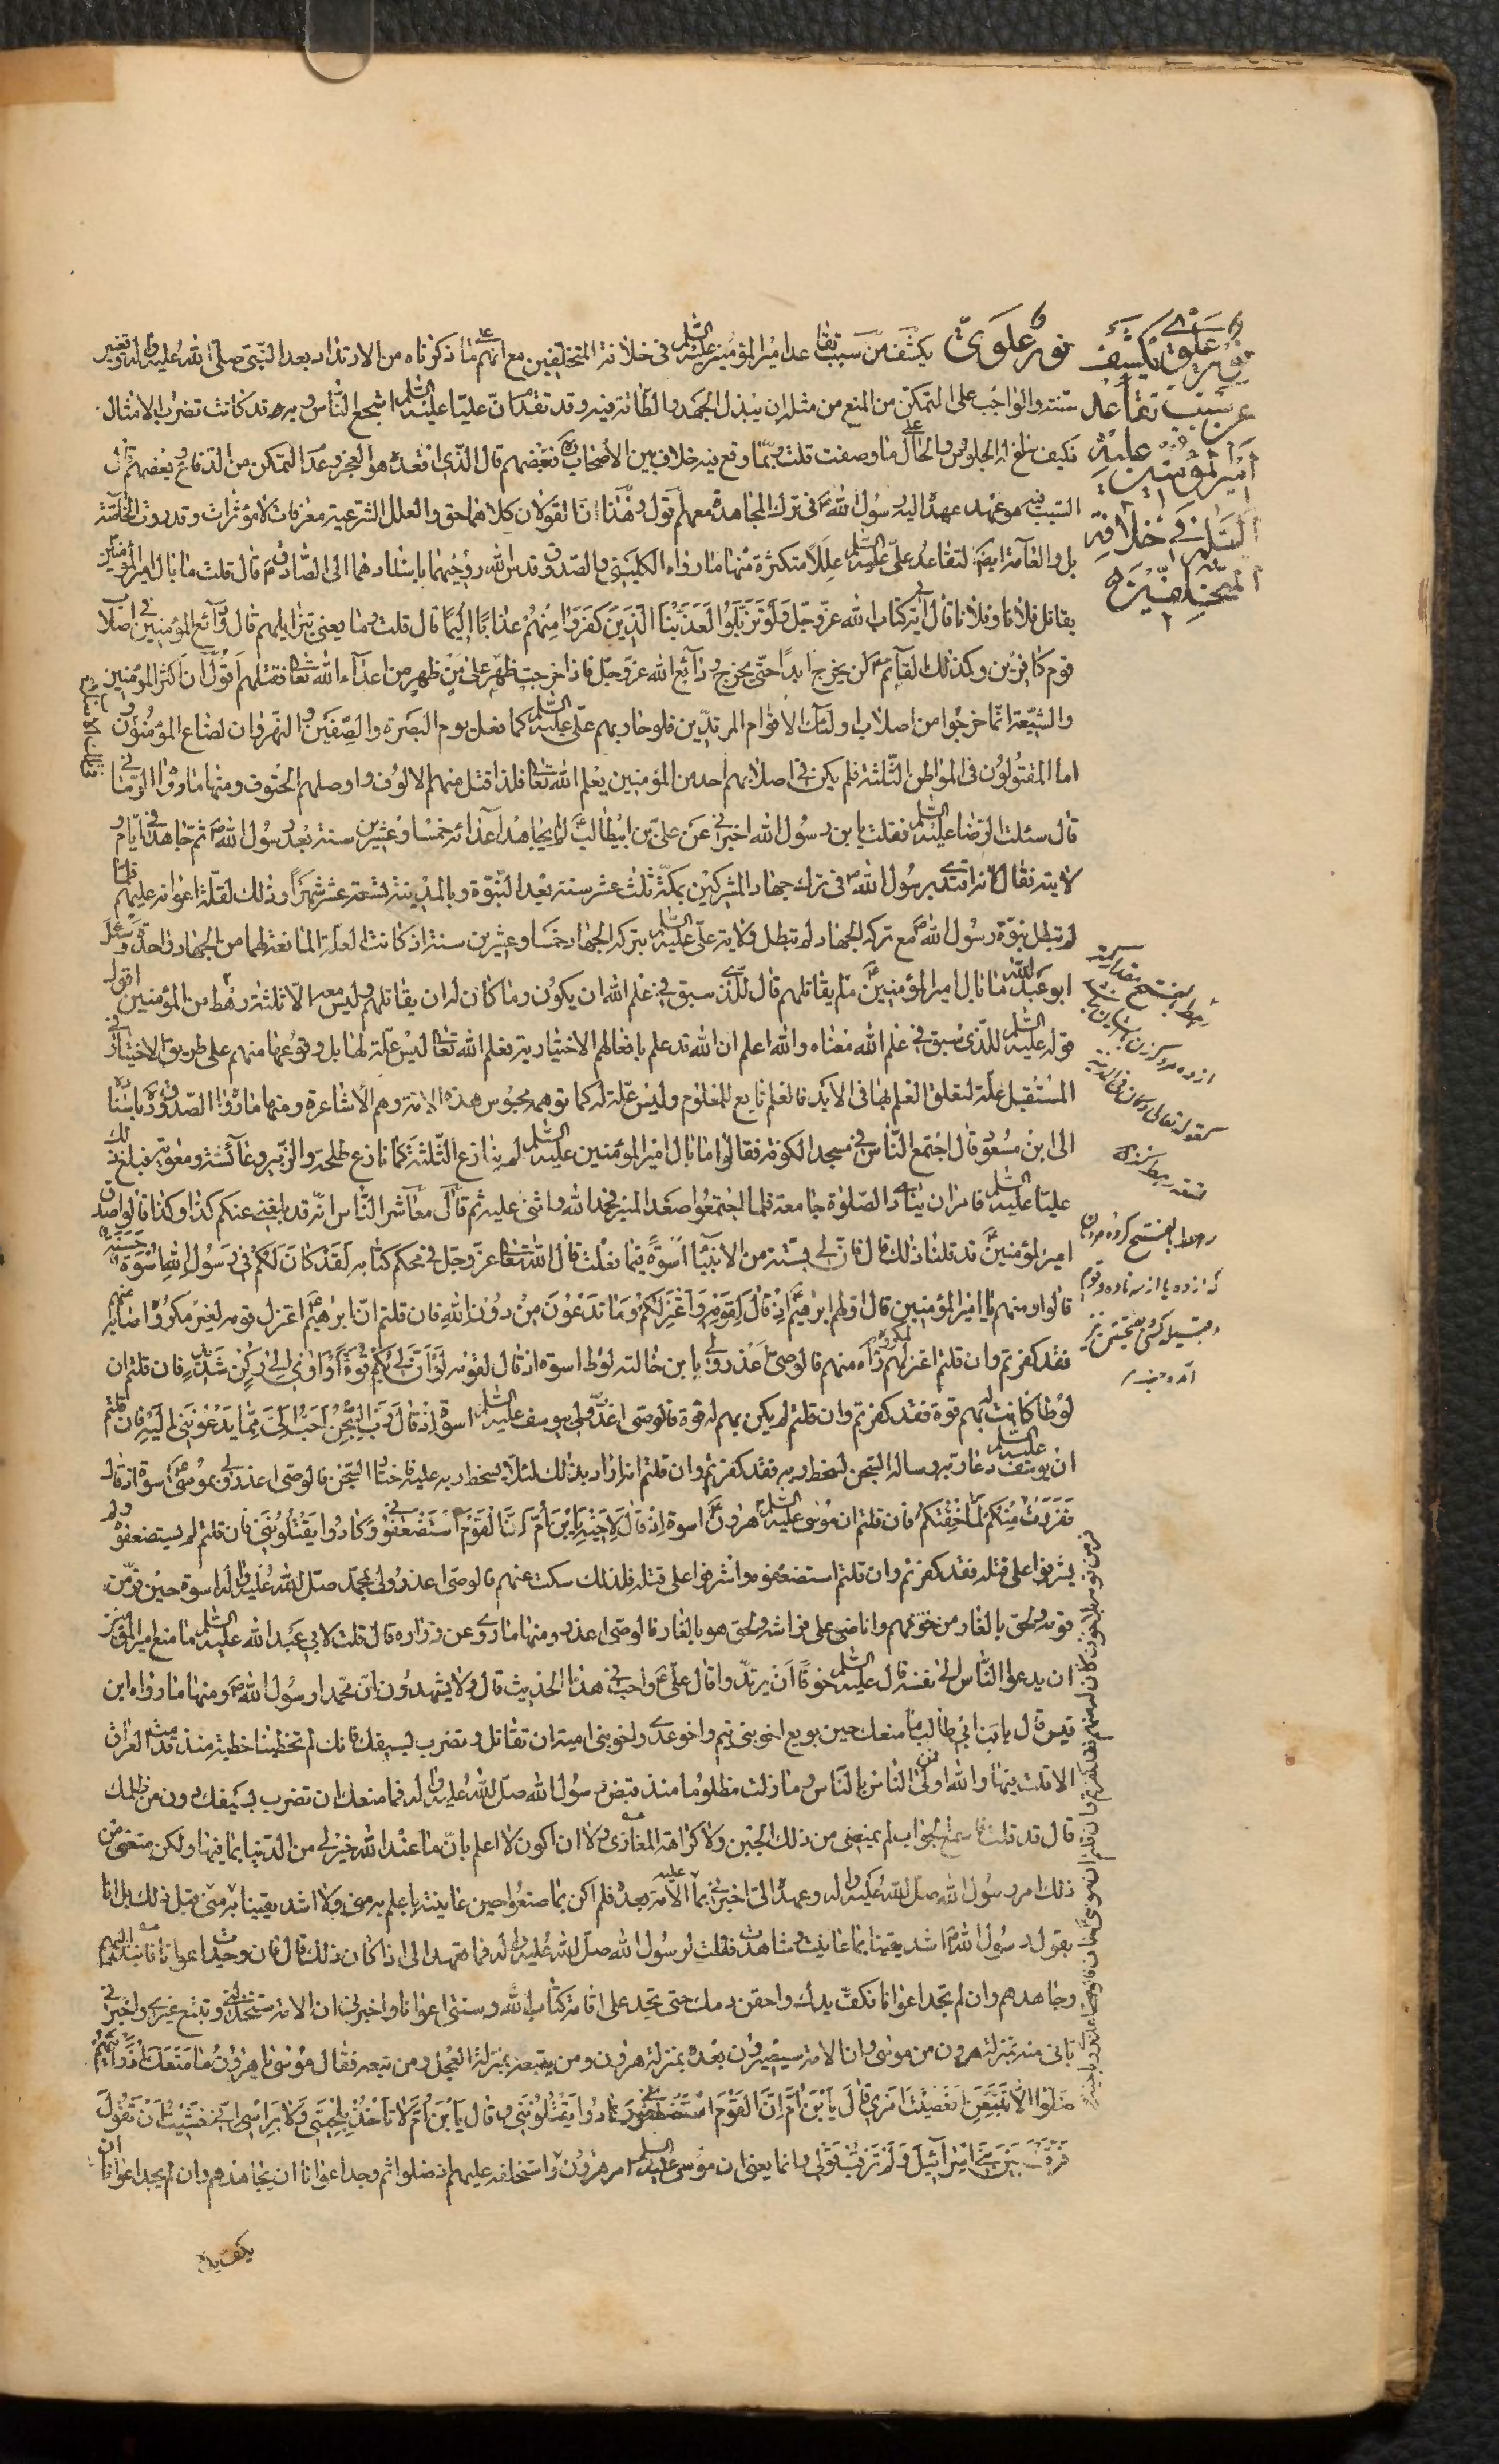 نور علوي يكشف
عن سبب تقاعد
امير المؤمنين عليه
السلم في خلافة
المتخلفين
نور علوي يكشف عن سبب تقاعد امير المؤمنين عليه السلم في خلافة المتخلفين مع انهم ع ما ذكرناه من الارتداد بعد النبي صلى الله عليه واله وتغيير
سنته والواجب على المتمكن من المنع من مثله ان يبذل الجهد والطاقة فيه وقد تقدم ان عليا عليه السلم اشجع الناس وبه قد كانت تضرب الامثال
فكيف بلغ له الجلوس والحال على ما وصفت قلت ربما وقع فيه خلاف بين الاصحاب ره فبعضهم قال الذي اقعده هو العجز وعدم التمكن من الدفاع وبعضهم قال
السبب فيه هو عهد عهده اليه رسول الله ص في ترك المجاهدة معهم اقول وهذان القولان كلاهما حق والعلل الشرعية معرفات لا مؤثرات وقد روت الخاصة
بل والعامة ايضا لتقاعد علي عليه السلم عللا متكثرة منها ما رواه الكليني والصدوق قدس الله روحيهما باسنادهما الى الصادق ع قال قلت ما بال امير المؤمنين
يقاتل فلانا وفلانا قال لاية في كتاب الله عز وجل لو تزيلوا لعذبنا الذين كفروا منهم عذابا اليما قال قلت وما يعني بتزايلهم قال ودائع المؤمنين في اصلاب
قوم كافرين وكذلك القائم ع لن يخرج ابدا حتى يخرج ودائع الله عز وجل فاذا خرجت ظهر على من ظهر من اعداء الله تعالى فقتلهم اقول ان اكثر المؤمنين
والشيعة انما خرجوا من اصلاب اولئك الاقوام المرتدين فلو حاربهم علي عليه السلم كما فعل يوم البصرة والصفين والنهروان لضاع المؤمنون و
اما المقتولون في المواطن الثلثة فلم يكن في اصلابهم احد من المؤمنين يعلم الله تعالى فلذا قتل منهم الالوف واوصلهم الحتوف ومنها ما روا الرماني
قال سئلت الرضا عليه السلم فقلت يابن رسول الله اخبرني عن علي بن ابيطالب ع لم لم يجاهد اعدائه خمسا وعشرين سنة بعد رسول الله ص ثم جاهد في ايام و
لايته فقال لانه اقتدى برسول الله ص في ترك جهاد المشركين بمكة ثلث عشر سنة بعد النبوة وبالمدينة تسعة عشر شهرا وذلك لقلة اعوانه عليهم فلما
لم تبطل نبوة رسول الله ص مع تركه الجهاد لم تبطل ولاية علي عليه السلم بتركه الجهاد خمسا وعشرين سنة اذ كانت العلة المانعة لهما من الجهاد واحدة وسئل
ابو عبد الله ع ما بال امير المؤمنين ع لم يقاتلهم قال للذي سبق في علم الله ان يكون وما كان له ان يقاتلهم وليس معه الا ثلثة رهط من المؤمنين اقول
قوله عليه السلم للذي سبق في علم الله معناه والله اعلم ان الله قد علم بافعالهم الاختيارية فعلم الله تعالى ليس علة لها بل وقوعها منهم على طريق الاختيار في
المستقبل علة لتعلق العلم بها في الابد فالعلم تابع للمعلوم وليس علة له كما توهمه مجوس هذه الامة وهم الاشاعرة ومنها ما رواه الصدوق ره باسناده
الى ابن مسعود قال اجتمع الناس في مسجد الكوفة فقالوا ما بال امير المؤمنين عليه السلم لم ينازع الثلثة كما نازع طلحة والزبير وعائشة ومعوية فبلغ ذلك
عليا عليه السلم فامر ان ينادى الصلوة جامعة فلما اجتمعوا صعد المنبر فحمد الله واثنى عليه ثم قال معاشر الناس انه قد بلغني عنكم كذا وكذا قالوا صدق
امير المؤمنين ع قد قلنا ذلك قال فان لي بسنة من الانبياء اسوة فيما فعلت قال الله تعالى عز وجل في محكم كتابه لقد كان لكم في رسول الله اسوة حسنة
قالوا ومنهم يا امير المؤمنين قال اولهم ابرهيم ع اذ قال لقومه واعتزلكم وما تدعون من دون الله فان قلتم ان ابرهيم ع اعتزل قومه لغير مكروه اصابه منهم
فقد كفرتم وان قلتم اعتزلهم لمكروه راه منهم فالوصي اعذر ولي بابن خالته لوط اسوة اذ قال لقومه لو ان لي بكم قوة او آوي الى ركن شديد فان قلتم ان
لوطا كانت له بهم قوة فقد كفرتم وان قلتم لم يكن بهم له قوة فالوصي اعذر ولي بيوسف عليه السلم اسوة اذ قال رب السجن احب الي مما يدعونني اليه فان قلتم
ان يوسف عليه السلم دعا ربه وساله السجن لسخط ربه فقد كفرتم وان قلتم انه اراد بذلك لئلا يسخط ربه عليه فاختار السجن فالوصي اعذر ولي بموسى ع اسوة اذ قال
ففررت منكم لما خفتكم فان قلتم ان موسى عليه السلم هرون ع اسوة اذ قال لاخيه يا ابن ام ان القوم استضعفوني وكادوا يقتلونني فان قلتم لم يستضعفوه ولم
يشرفوا على قتله فقد كفرتم وان قلتم استضعفوه واشرفوا على قتله فلذلك سكت عنهم فالوصي اعذر ولي بمحمد صلى الله عليه واله اسوة حين فر من
قومه ولحق بالغار من خوفهم وانامني على فراشه ولحق هو بالغار فالوصي اعذر ومنها ما روى عن زراره قال قلت لابي عبد الله عليه السلم ما منع امير المؤمنين
ان يدعوا الناس الى نفسه قال عليه السلم خوفا ان يرتدوا قال علي ع واحب في هذا الحديث قال ولا يشهدون ان محمدا رسول الله ص ومنها ما رواه ابن
قيس قال يابن ابي طالب ما منعك حين بويع اخو بني تيم واخو عدي واخو بني امية ان تقاتل وتضرب بسيفك فانك لم تخطبنا خطبة منذ قدمت العراق
الا قلت فيها والله اني اولى الناس بالناس وما زلت مظلوما منذ قبض رسول الله صلى الله عليه واله فما منعك ان تضرب بسيفك دون من ظلمك
قال قد قلت فاسمع الجواب لم يمنعني من ذلك الجبن ولا كراهة المغازي ولا ان اكون لا اعلم بان ما عند الله خير لي من الدنيا بما فيها ولكن منعني من
ذلك امر رسول الله صلى الله عليه واله وعهده الي اخبرني بما الامة عليه بعده فلم اكن بما صنعوا حين عاينته باعلم به مني ولا اشد يقينا به مني قبل ذلك بل انا
بقول رسول الله ص اشد يقينا بما عاينت وشاهدت فقلت لرسول الله صلى الله عليه واله فما تعهد الي اذا كان ذلك قال فان وجدت اعوانا فانبذ اليهم
وجاهدهم وان لم تجد اعوانا فكف يدك واحقن دمك حتى تجد على اقامة كتاب الله وسنتي اعوانا واخبرني ان الامة ستخذلني وتتبع غيري واخبرني
باني منه بمنزلة هرون من موسى وان الامة سيصيرون بعده بمنزلة هرون ومن يتبعه بمنزلة العجل ومن تبعه فقال موسى يا هرون ما منعك اذ رايتهم
ضلوا الا تتبعن افعصيت امري قال يا ابن ام ان القوم استضعفوني وكادوا يقتلونني وقال يا ابن ام لا تاخذ بلحيتي ولا براسي اني خشيت ان تقول
فرقت بين بني اسرآئيل ولم ترقب قولي وانما يعني ان موسى عليه السلم امر هرون و استخلفه عليهم ان ضلوا ثم وجد اعوانا ان يجاهدهم وان لم يجد اعوانا ان
يكف يده